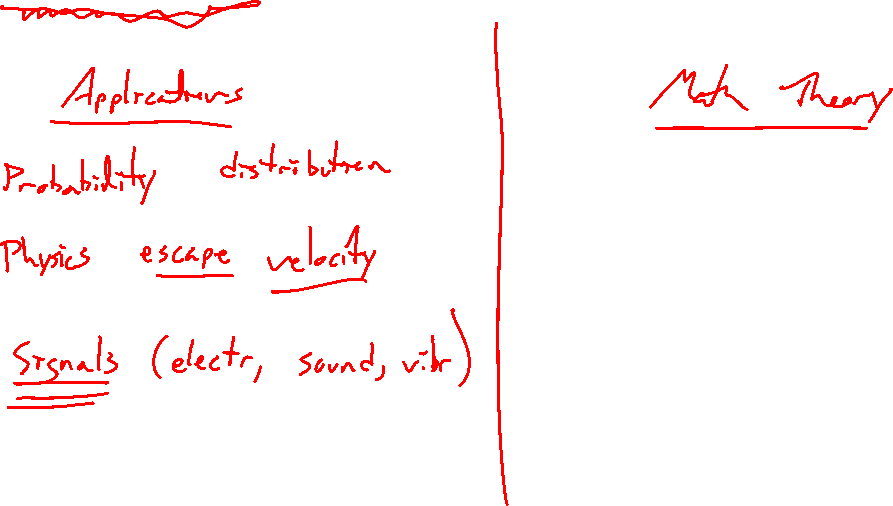 Applications
Probability distribution
Physics escape velocity
Signals (electr, sound, vibr)
Math Theory